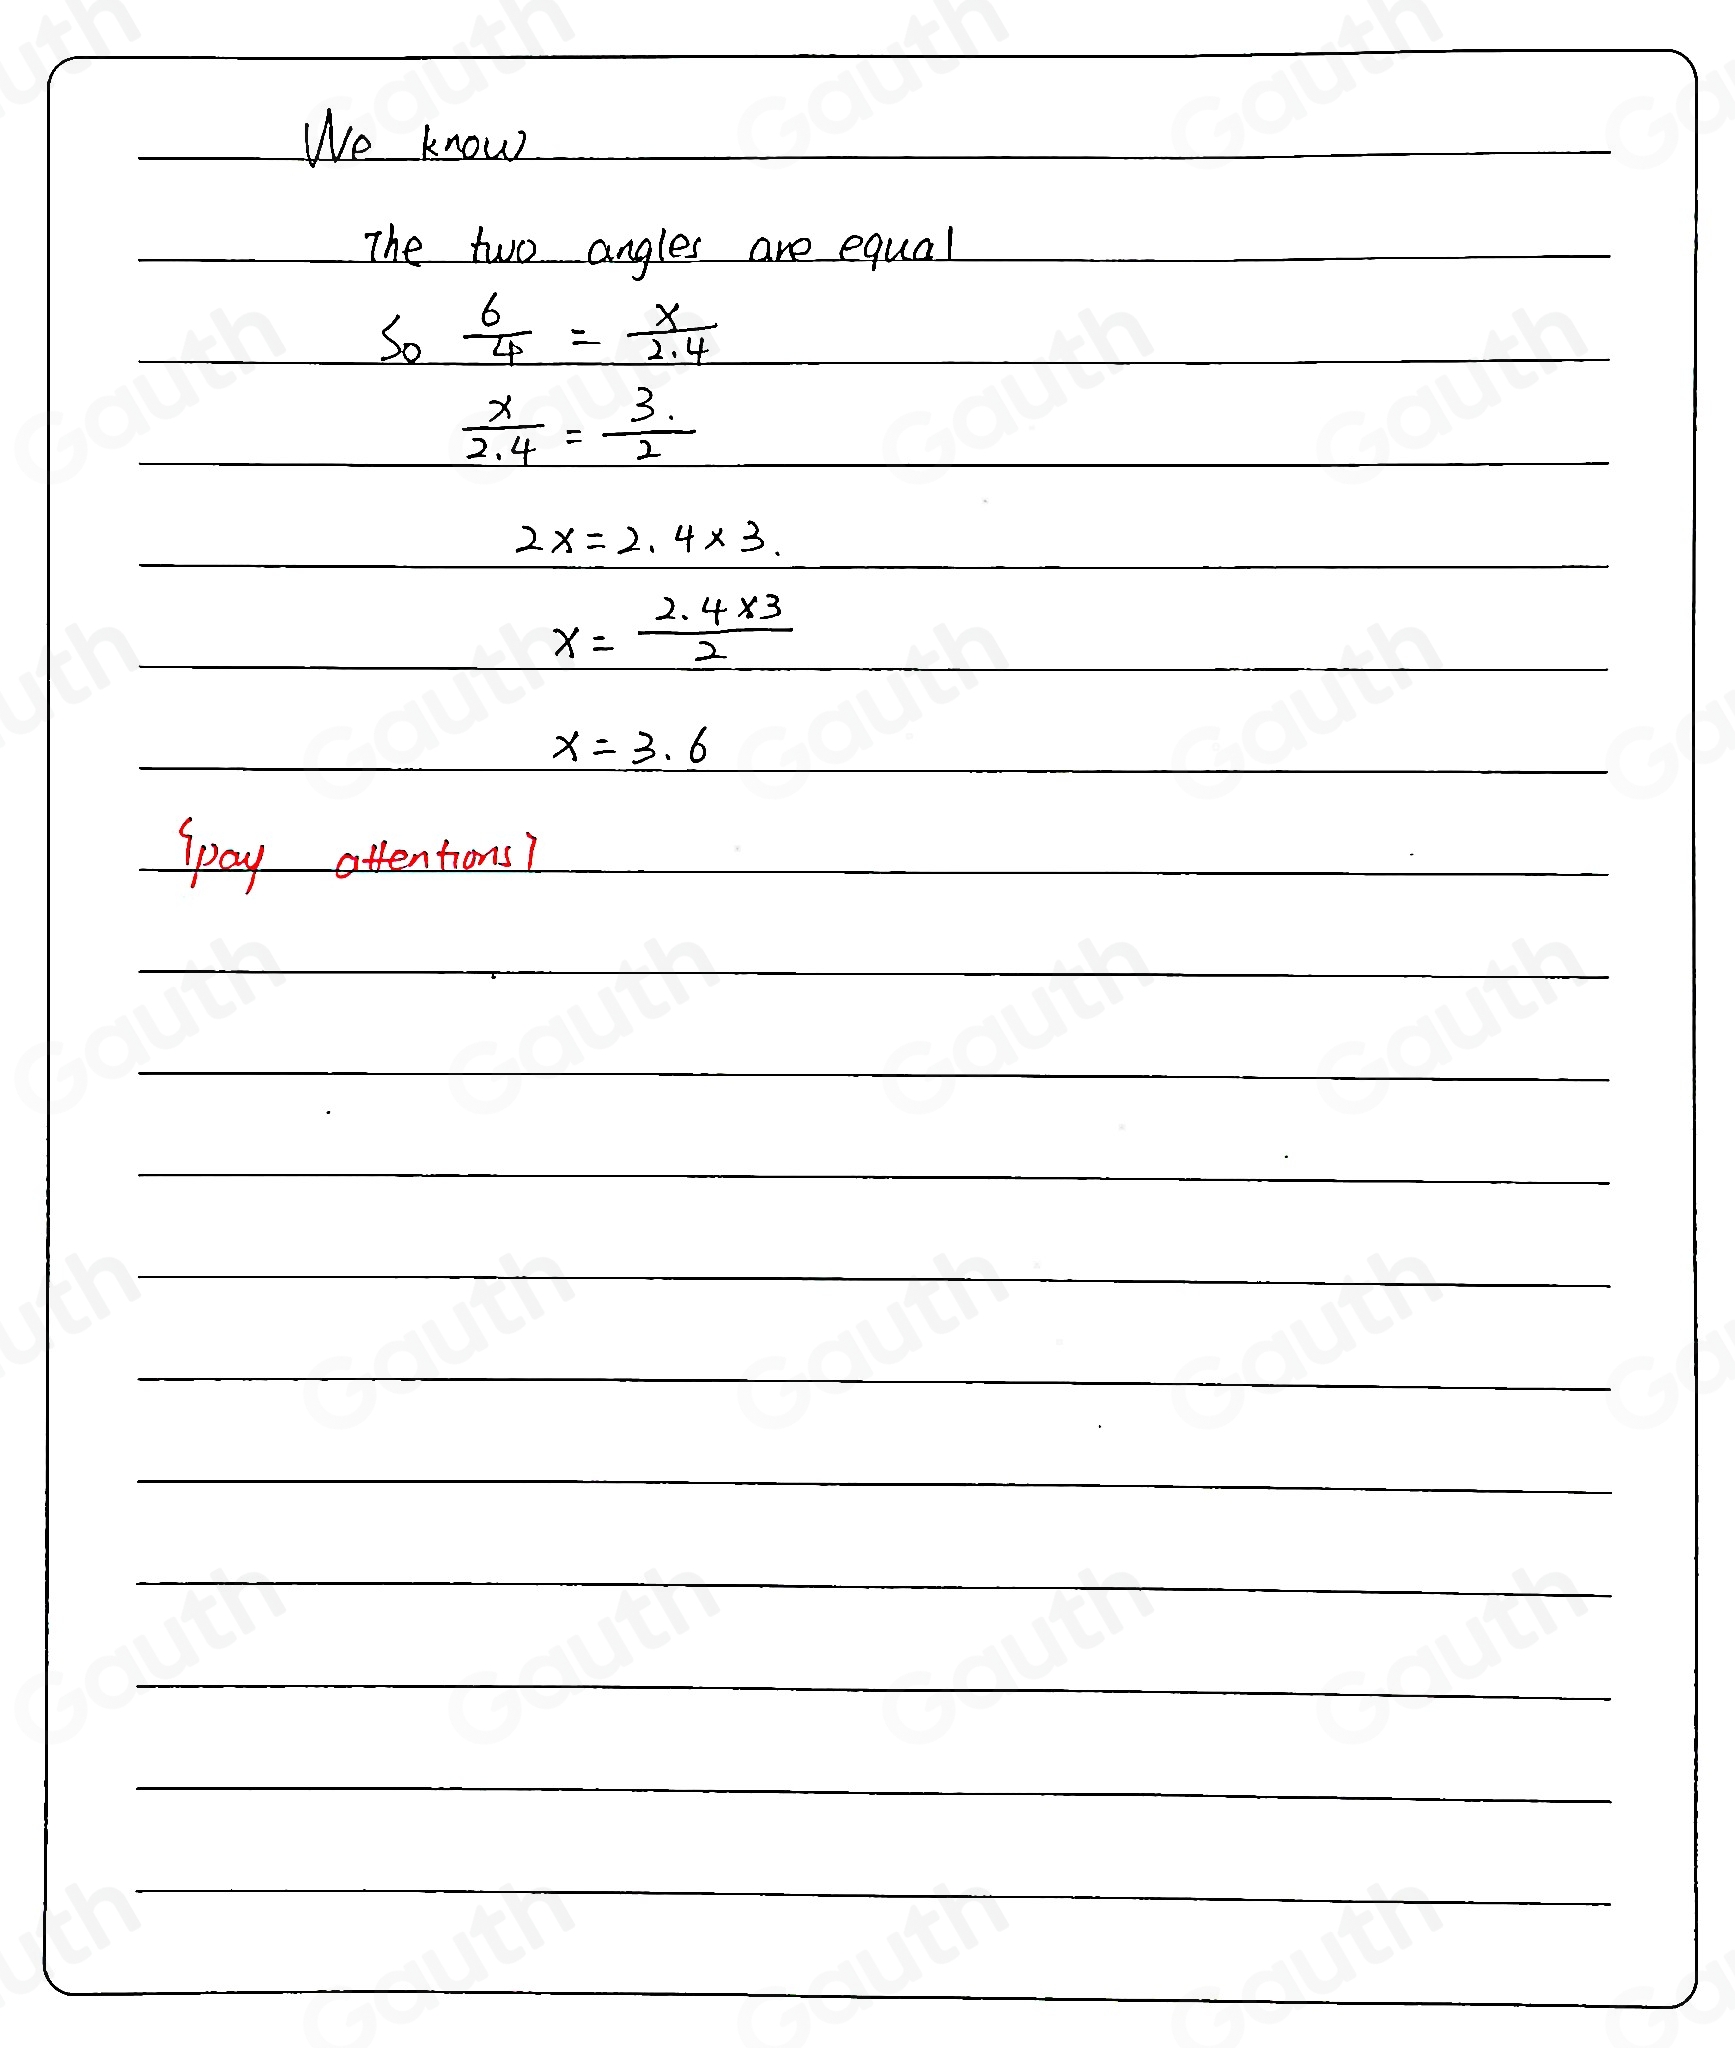 We know
The two angles are equal
So 6/4 = x/2.4
x/2.4 = 3./2
2x=2.4×3.
x= 2.4×3/2
x=3.6
{pay attentions}